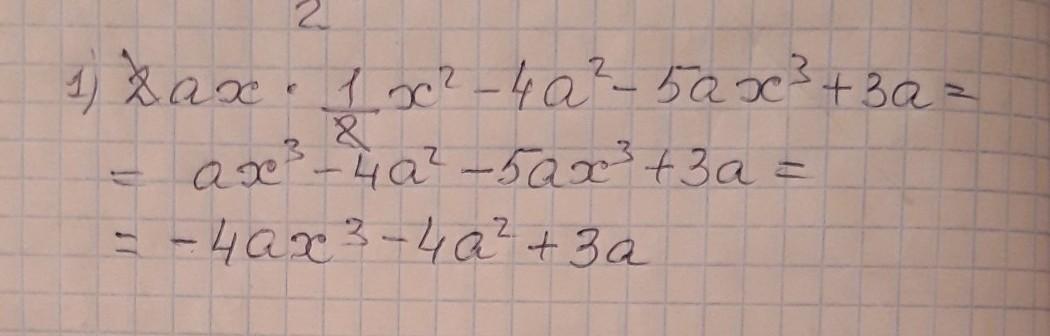 2
1) 2ax · 1/2 x² - 4a² - 5ax³ + 3a =
= ax³ - 4a² - 5ax³ + 3a =
= -4ax³ - 4a² + 3a